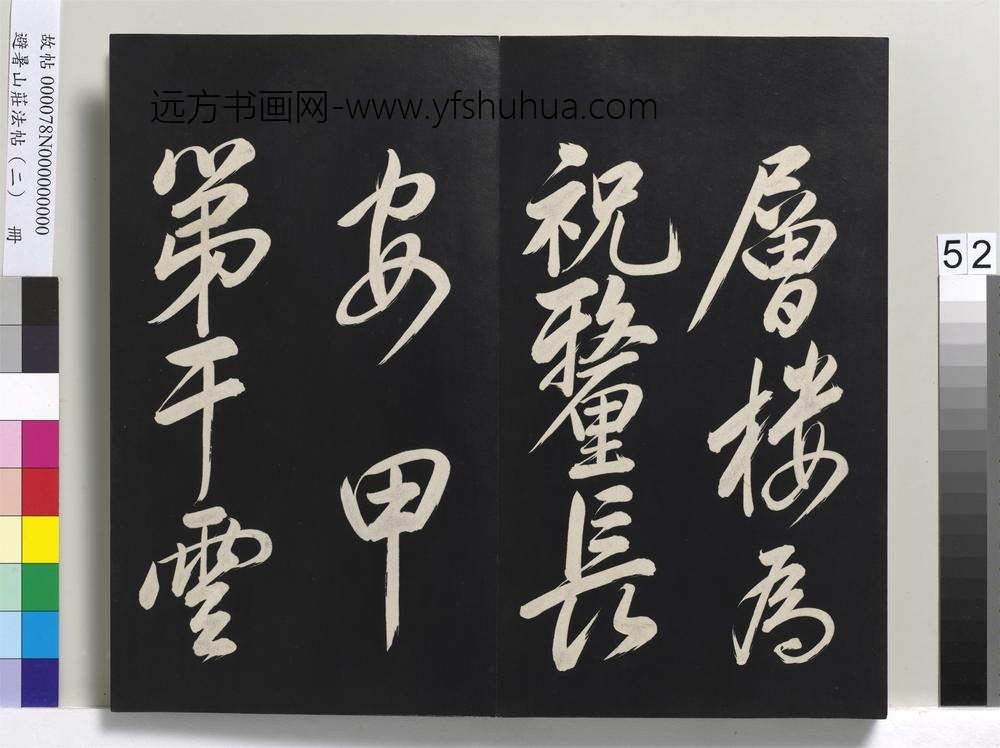 层樓為
祝釐長
安甲
第干雲
远方书画网-www.yfshuhua.com
故帖 000078N000000000
避暑山莊法帖（二） 冊
52